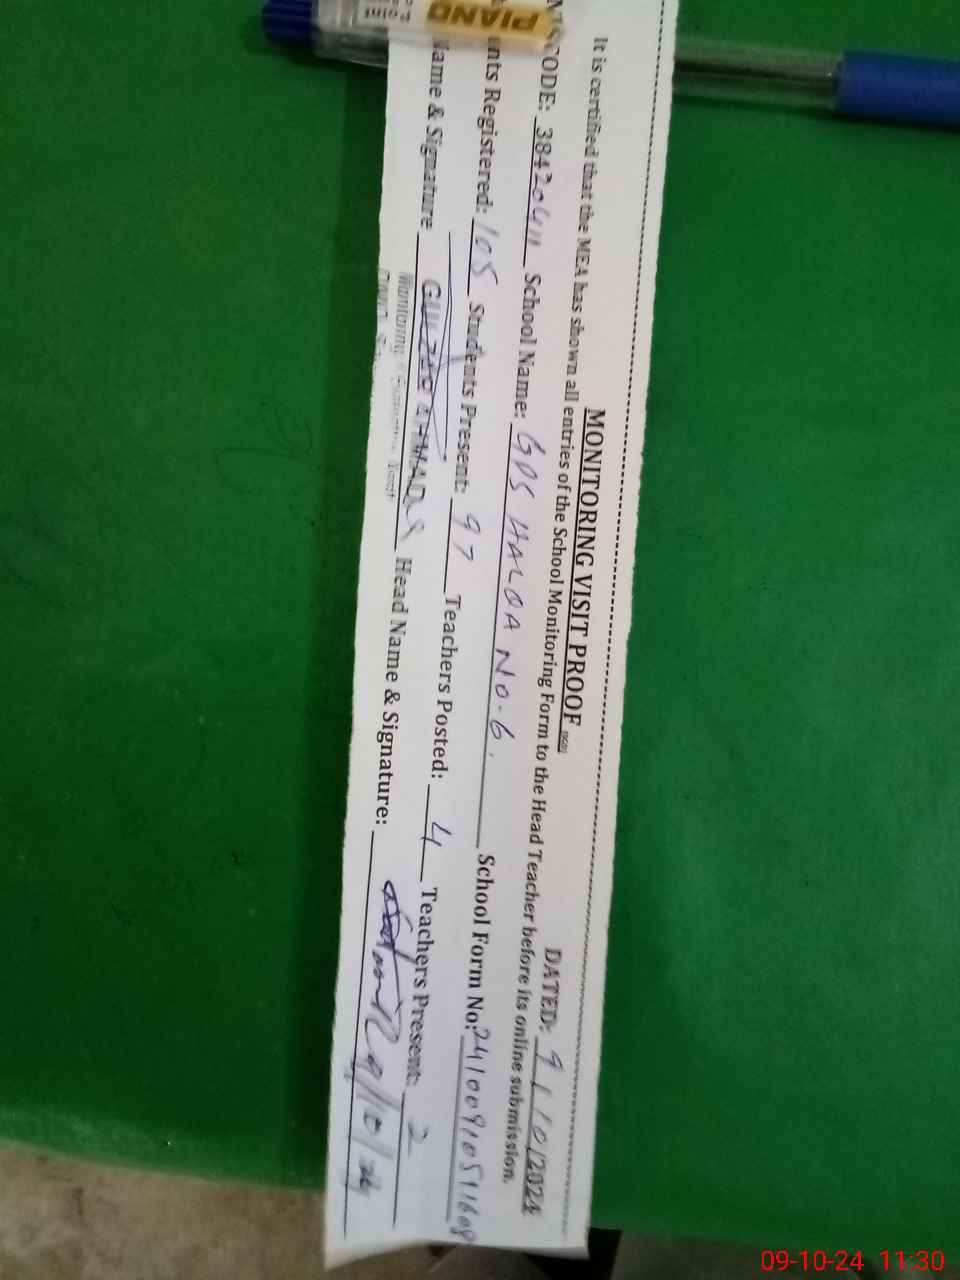 MONITORING VISIT PROOF
DATED: 9/10/2024
It is certified that the MEA has shown all entries of the School Monitoring Form to the Head Teacher before its online submission.
CODE: 38420411 School Name: GPS HALOA NO-6. School Form No: 2410091051608
nts Registered: 105 Students Present: 97 Teachers Posted: 4 Teachers Present: 2
ame & Signature GULZAR AHMAD Head Name & Signature: 9/10/24
PIANO
09-10-24 11:30